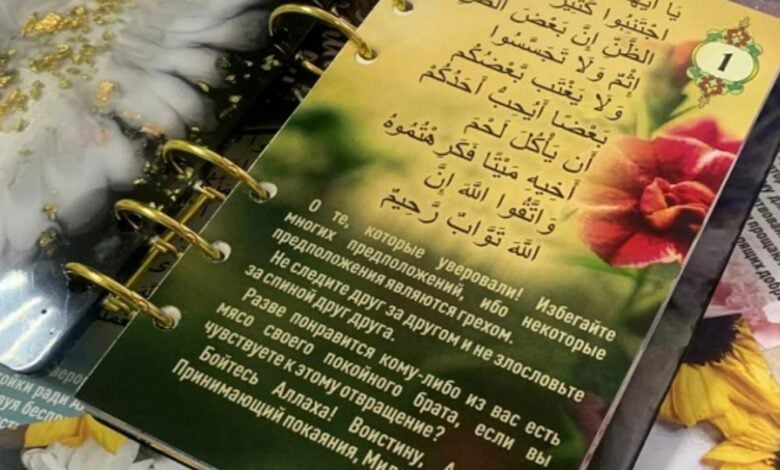 1
يَا أَيُّهَا
اجْتَنِبُوا كَثِيرً
الظَّنِّ إِنَّ بَعْضَ الظَّنِّ
إِثْمٌ وَلَا تَجَسَّسُوا
وَلَا يَغْتَب بَّعْضُكُم
بَعْضًا أَيُحِبُّ أَحَدُكُمْ
أَن يَأْكُلَ لَحْمَ
أَخِيهِ مَيْتًا فَكَرِهْتُمُوهُ
وَاتَّقُوا اللَّهَ إِنَّ
اللَّهَ تَوَّابٌ رَّحِيمٌ
О те, которые уверовали! Избегайте
многих предположений, ибо некоторые
предположения являются грехом.
Не следите друг за другом и не злословьте
за спиной друг друга.
Разве понравится кому-либо из вас есть
мясо своего покойного брата, если вы
чувствуете к этому отвращение?
Бойтесь Аллаха! Воистину, А
Принимающий покаяния, Мил